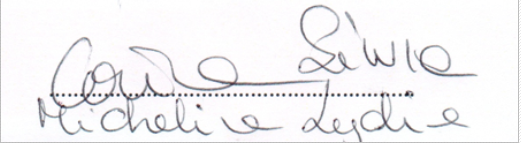 Corina Silvia
Micheline Lydia